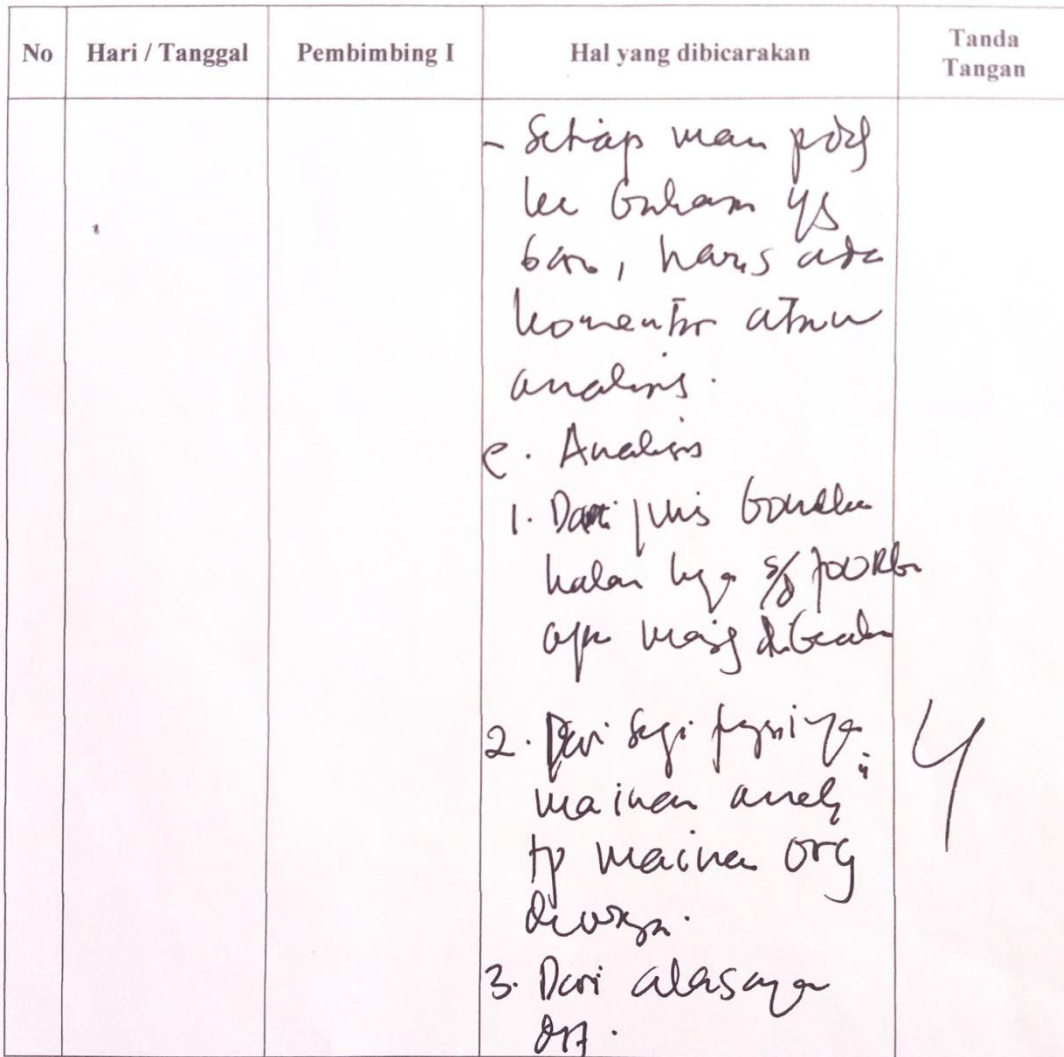 No Hari / Tanggal Pembimbing I Hal yang dibicarakan Tanda Tangan
- Setiap mau
ke yg
baru, harus ada
komentar atau
analisis.
e. Analisis
1. Dari jenis boneka
kalau s/d
apa
2. Dari segi fungsinya
mainan anak"
tp mainan org
dewasa.
3. Dari alasannya
dst.